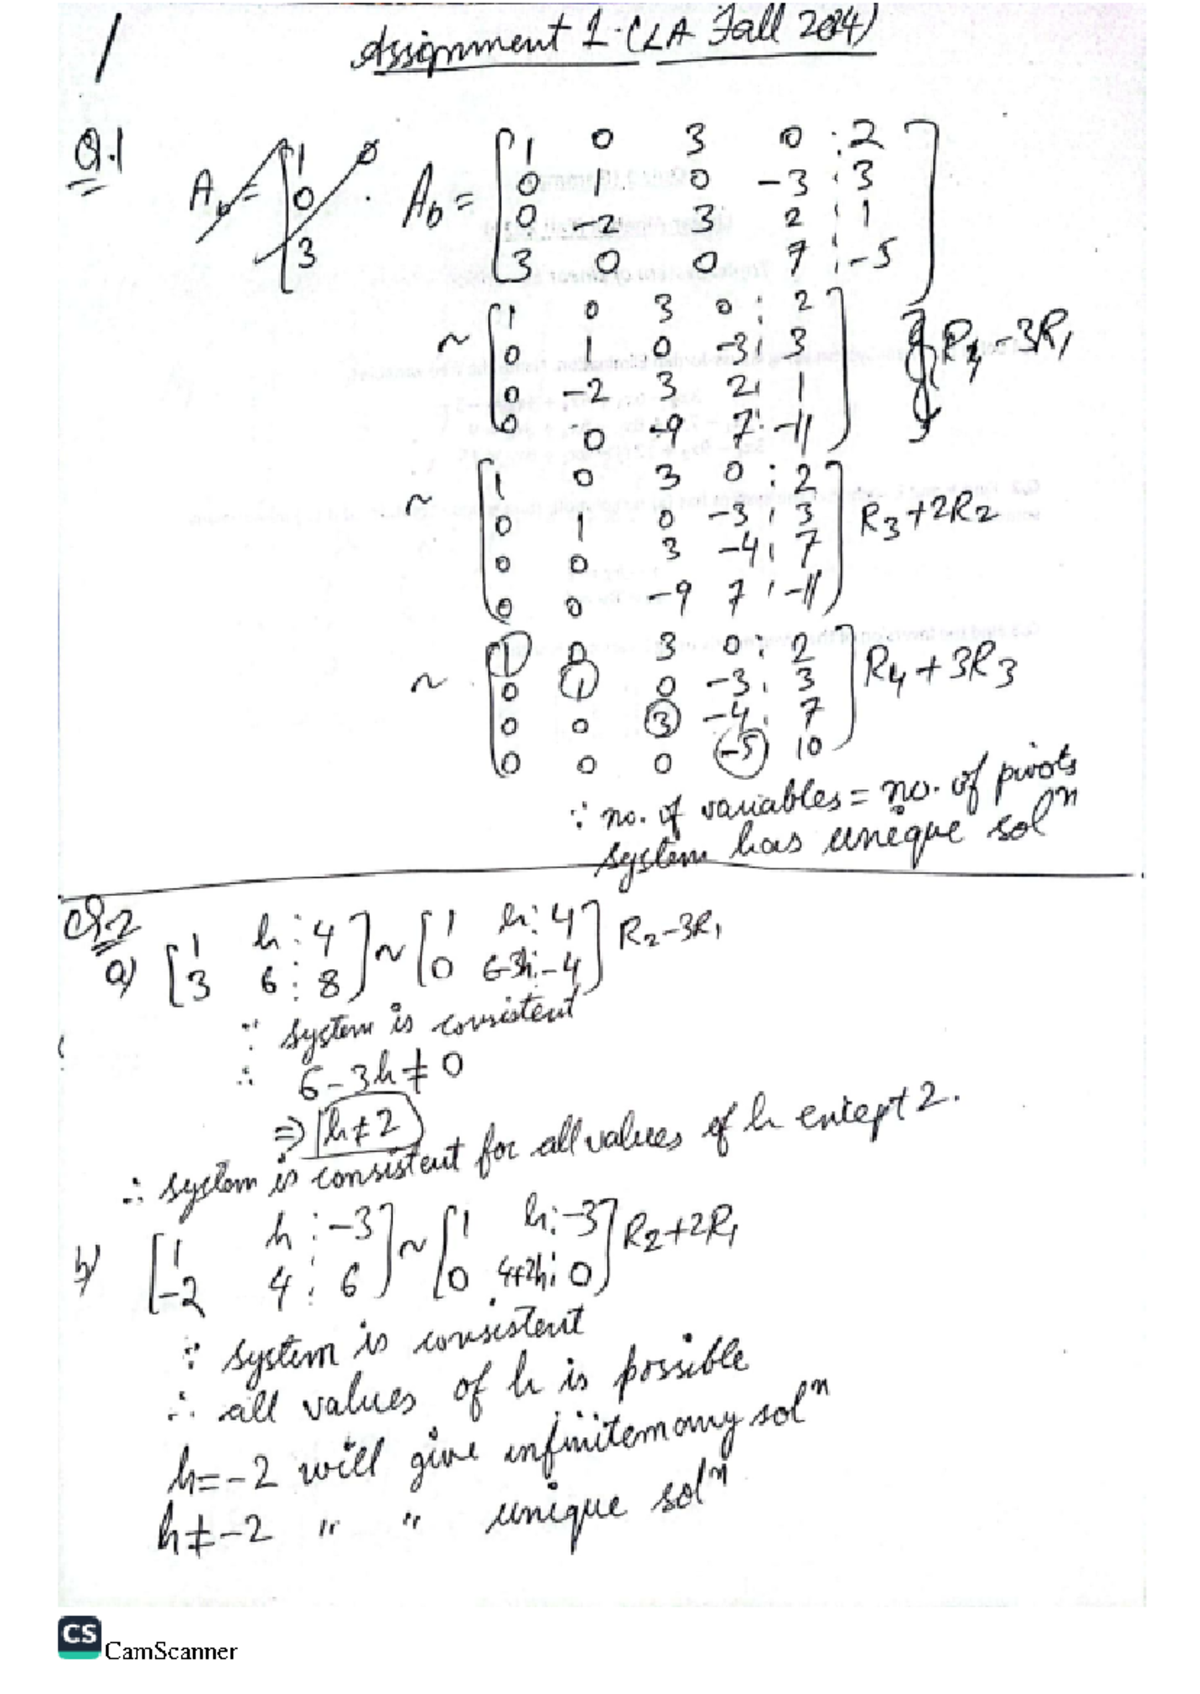 1
Assignment 1 - (LA Fall 2024)
Q.1
A_b = [1 0
0
3
A_b = [1 0 3 0 : 2
0 1 0 -3 : 3
0 -2 3 2 : 1
3 0 0 7 : -5]
~ [1 0 3 0 : 2
0 1 0 -3 : 3
0 -2 3 2 : 1
0 0 -9 7 : -11] R4 - 3R1
~ [1 0 3 0 : 2
0 1 0 -3 : 3
0 0 3 -4 : 7
0 0 -9 7 : -11] R3 + 2R2
~ [1 0 3 0 : 2
0 1 0 -3 : 3
0 0 3 -4 : 7
0 0 0 -5 10] R4 + 3R3
∵ no. of variables = no. of pivots
system has unique solⁿ
Q.2
a) [1 h : 4 ~ [1 h : 4
3 6 : 8] 0 6-3h : -4] R2-3R1
∵ system is consistent
∴ 6-3h ≠ 0
⇒ h ≠ 2
∴ system is consistent for all values of h except 2.
b) [1 h : -3 ~ [1 h : -3
-2 4 : 6] 0 4+2h : 0] R2+2R1
∵ system is consistent
∴ all values of h is possible
h = -2 will give infinitemany solⁿ
h ≠ -2 " " unique solⁿ
CS CamScanner